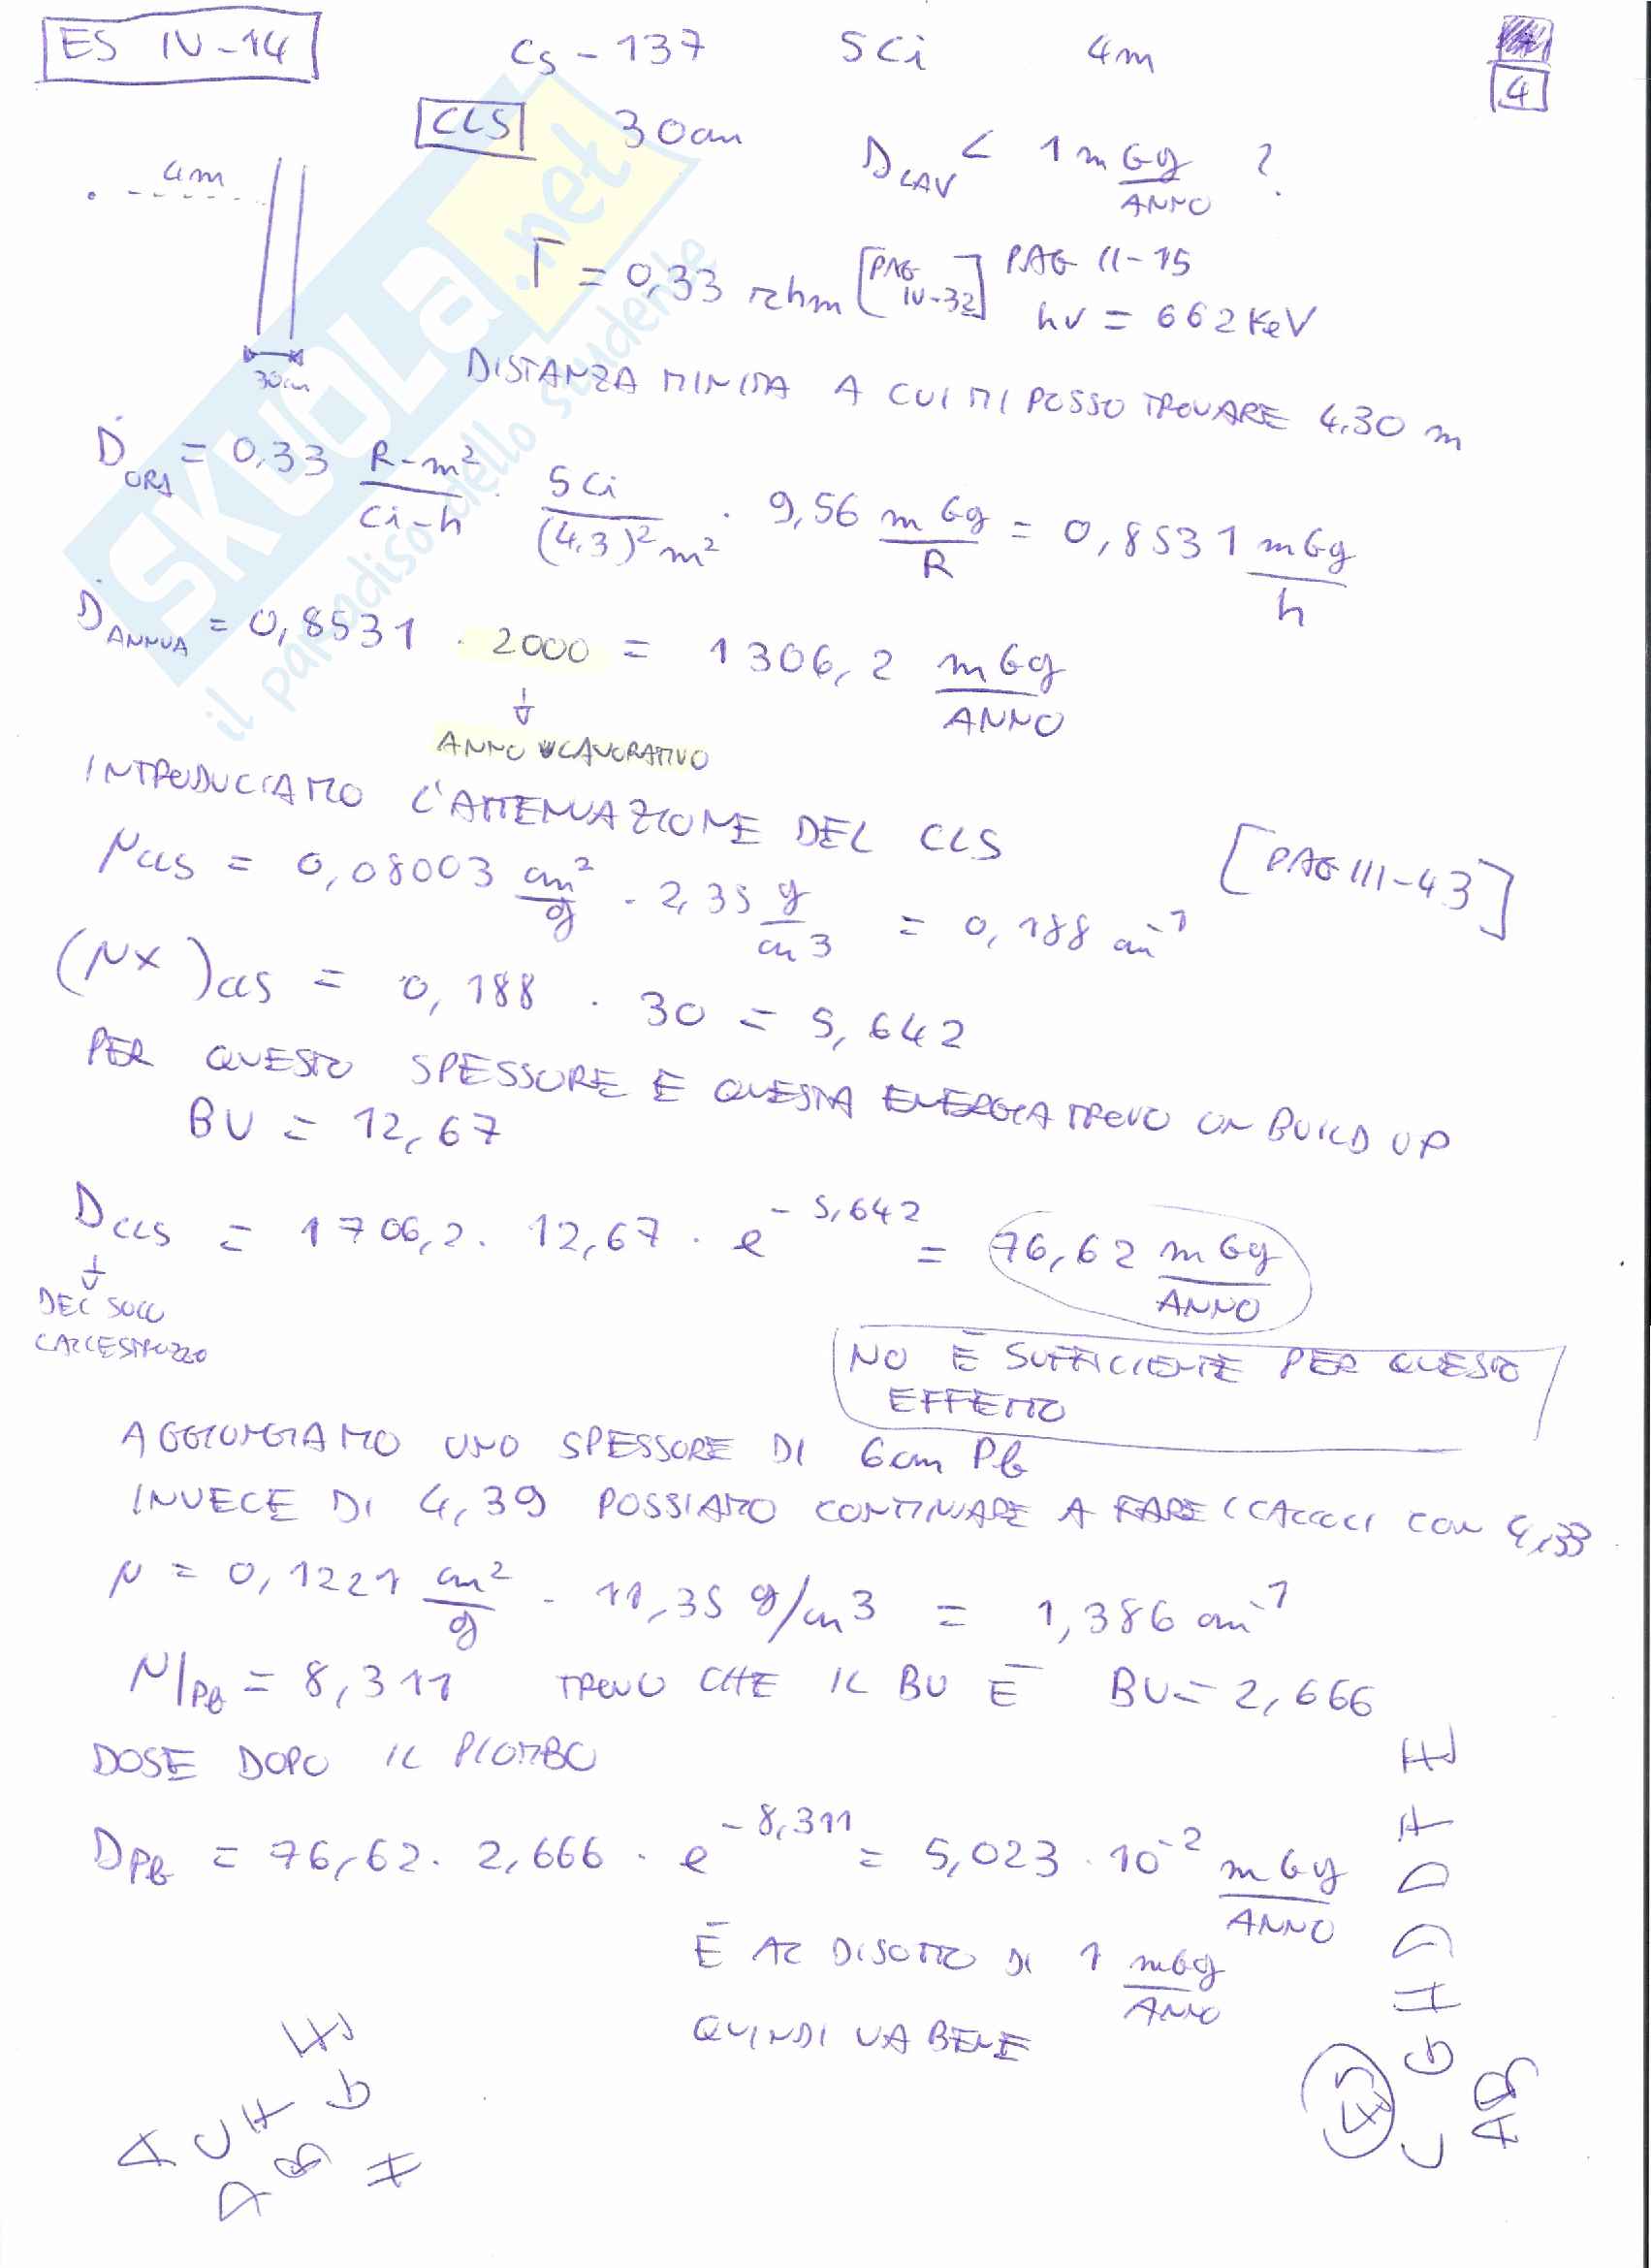 ES IV-14 Cs-137 5Ci 4m
4
CLS 30cm D LAV < 1 mGy/ANNO ?
4m
30cm
Γ = 0,33 rhm [PAG IV-32] PAG II-15
hν = 662 KeV
DISTANZA MINIMA A CUI MI POSSO TROVARE 4.30 m
Ḋ ORA = 0,33 R-m²/Ci-h · 5Ci/(4.3)² m² · 9,56 mGy/R = 0,8531 mGy/h
Ḋ ANNUA = 0,8531 · 2000 = 1306,2 mGy/ANNO
↓
ANNO LAVORATIVO
INTRODUCIAMO L'ATTENUAZIONE DEL CLS
μcls = 0,08003 cm²/g · 2,35 g/cm3 = 0,188 cm⁻¹ [PAG III-43]
(μx)cls = 0,188 · 30 = 5,642
PER QUESTO SPESSORE E QUESTA ENERGIA TROVO UN BUILD UP
BU = 12,67
D CLS = 1706,2 · 12,67 · e^-5,642 = 76,62 mGy/ANNO
↓
DEL SOLO
CALCESTRUZZO
NO È SUFFICIENTE PER QUESTO
EFFETTO
AGGIUNGIAMO UNO SPESSORE DI 6cm Pb
INVECE DI 4,39 POSSIAMO CONTINUARE A FARE I CALCOLI CON 4,33
μ = 0,1221 cm²/g · 11,35 g/cm3 = 1,386 cm⁻¹
μ|Pb = 8,311 TROVO CHE IL BU È BU = 2,666
DOSE DOPO IL PIOMBO
D Pb = 76,62 · 2,666 · e^-8,311 = 5,023 · 10⁻² mGy/ANNO
È AL DISOTTO DI 1 mGy/ANNO
QUINDI VA BENE
SKUOLA.net
il paradiso dello studente